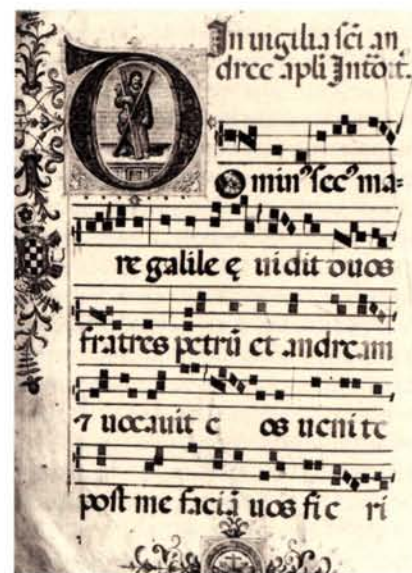 In uigilia sci an
dree apli Introit.
Omin⁹ sec⁹ ma=
re galile ę uidit duos
fratres petrū et andream
⁊ uocauit e os uenite
post me faciā uos fie ri